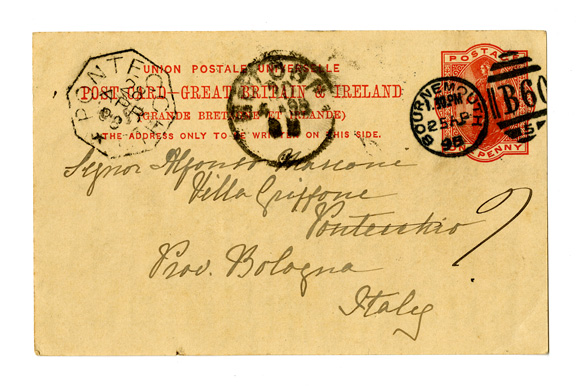 UNION POSTALE UNIVERSELLE
POST CARD—GREAT BRITAIN & IRELAND
(GRANDE BRETAGNE ET IRLANDE)
THE ADDRESS ONLY TO BE WRITTEN ON THIS SIDE.
POSTAGE
PENNY
BOURNEMOUTH
25 AP
98
B60
Signor Alfonso Marcone
Villa Griffone
Pontecchio
Prov. Bologna
Italy